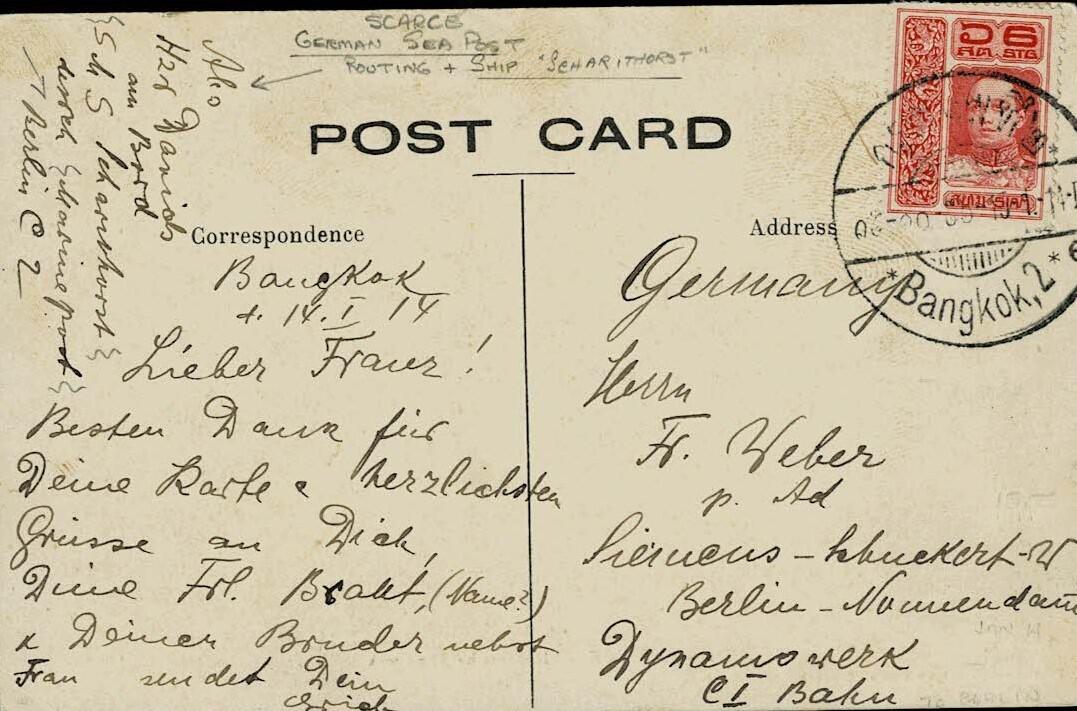 SCARCE
GERMAN SEA POST
ROUTING + SHIP "SCHARITHORST"
POST CARD
Also
Her Daniels
am Bord
{S.M.S Scharnhorst}
durch {Marinepost}
Berlin C 2
Correspondence
Bangkok
d. 14. I 14
Lieber Franz!
Besten Dank für
Deine Karte & herzlichsten
Grüsse an Dich,
Deine Frl. Braut, (Name?)
& Deinen Bruder nebst
Frau sendet Dein
Erich
Address
Germany
Herrn
Fr. Weber
p. Ad
Siemens-Schuckert-W
Berlin-Nonnendam
Dynamowerk
C I Bahn
๖ 6
STG
SIAM
*Bangkok, 2*